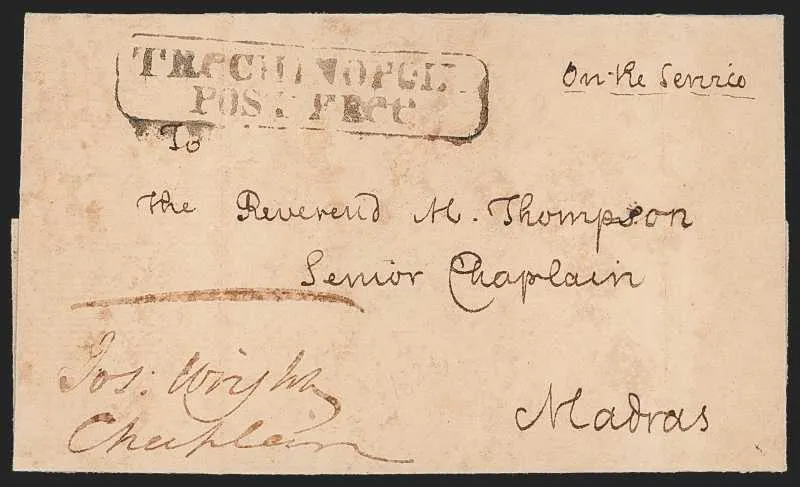 TRICHINOPOLY
POST FREE
On the Service
To
The Reverend M. Thompson
Senior Chaplain
Jos: Wright
Chaplain
Madras